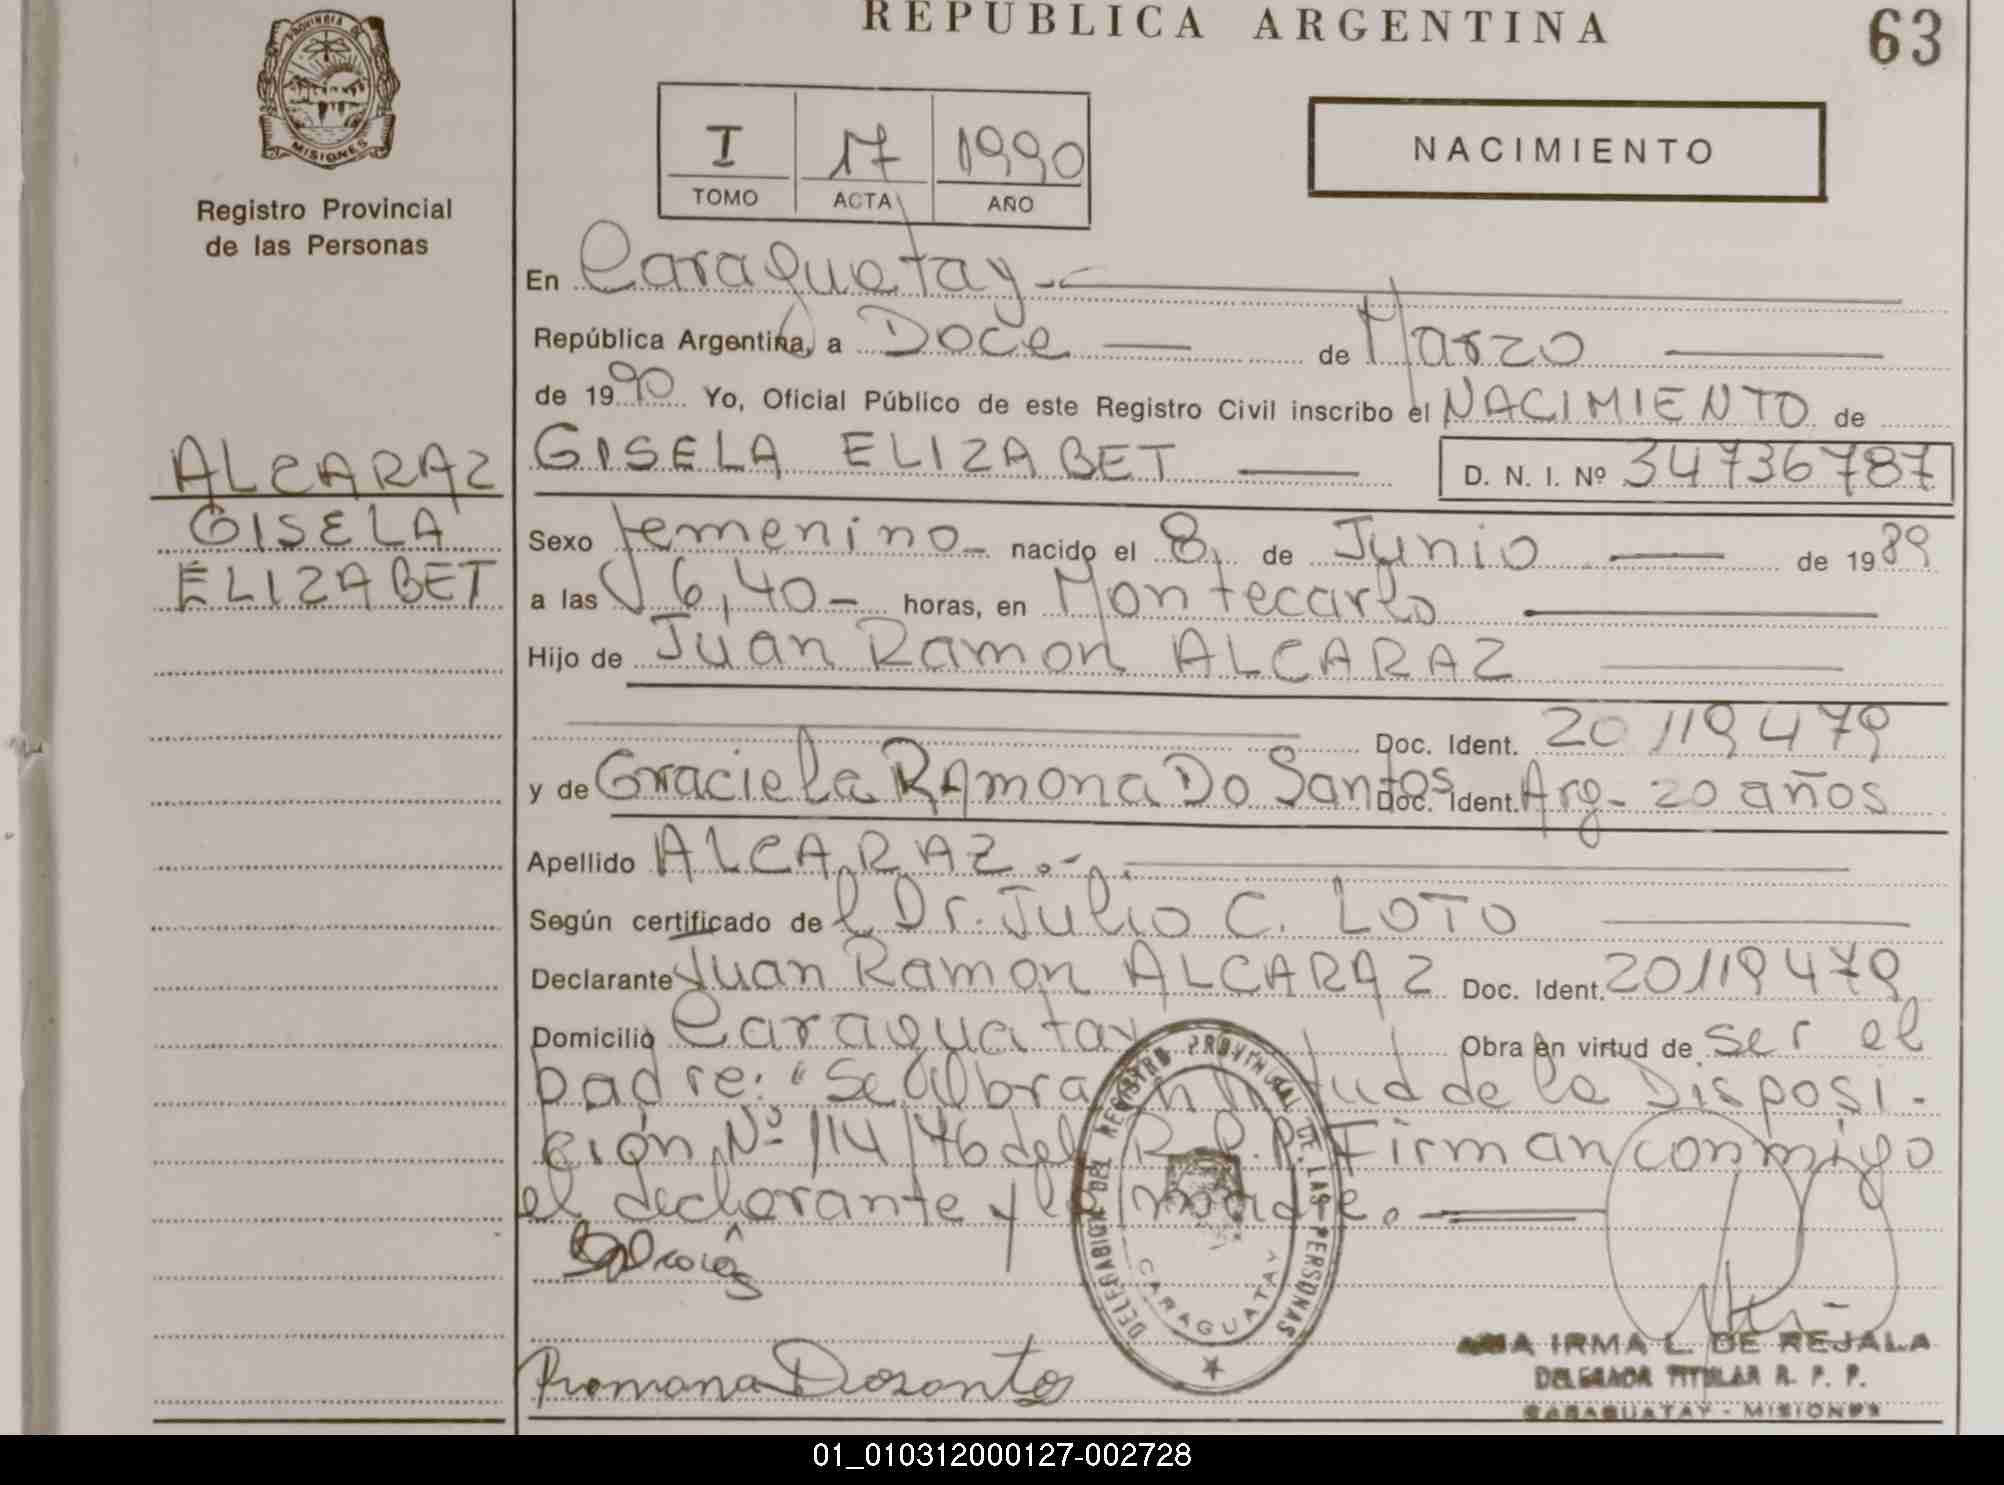 REPUBLICA ARGENTINA
63
PROVINCIA DE
MISIONES
Registro Provincial
de las Personas
I 17 1990
TOMO ACTA AÑO
NACIMIENTO
En Caraguatay.-
República Argentina, a Doce de Marzo
de 1990 Yo, Oficial Público de este Registro Civil inscribo el NACIMIENTO de
ALCARAZ
GISELA
ELIZABET
GISELA ELIZABET D. N. I. Nº 34736787
Sexo femenino- nacido el 8, de Junio de 1989
a las 6,40- horas, en Montecarlo
Hijo de Juan Ramon ALCARAZ
Doc. Ident. 20119479
y de Graciela RAmona Do Santos Doc. Ident. Arg- 20 años
Apellido ALCARAZ.-
Según certificado del Dr. Julio C. LOTO
Declarante Juan Ramon ALCARAZ Doc. Ident. 20119479
Domicilio Caraguatay Obra en virtud de ser el
padre: "Se Obra en virtud de la Disposi-
ción Nº 114/76 del R.P.P. Firman conmigo
el declarante y la madre.
DELEGACION DEL REGISTRO PROVINCIAL DE LAS PERSONAS
CARAGUATAY
Romana Dosanto
ANA IRMA L. DE REJALA
DELEGADA TITULAR R. P. P.
CARAGUATAY - MISIONES
01_010312000127-002728